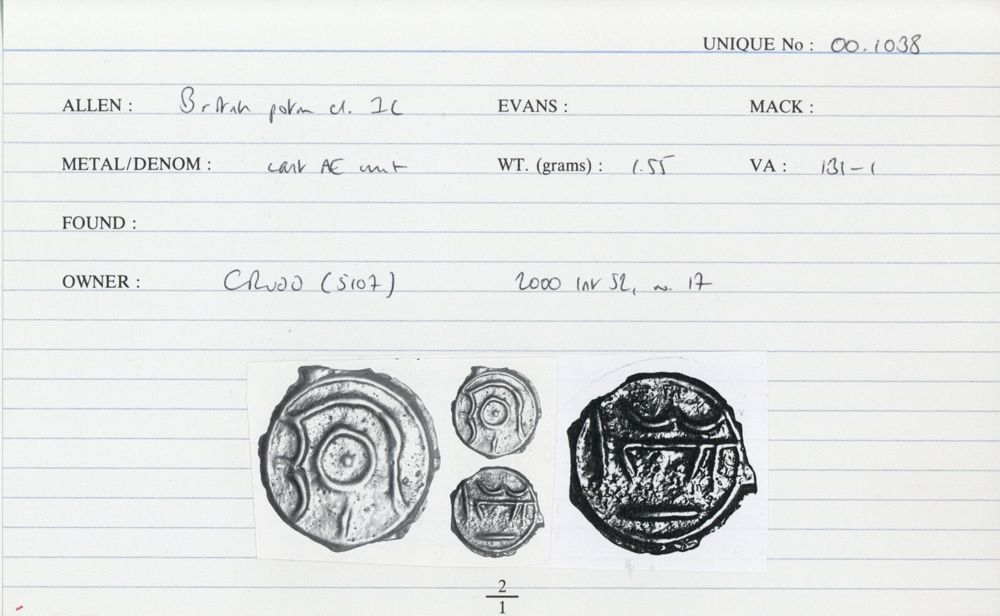 UNIQUE No : 00.1038
ALLEN : British potin cl. IC EVANS : MACK :
METAL/DENOM : cast AE unit WT. (grams) : 1.55 VA : 131-1
FOUND :
OWNER : (5107) 2000 52, 17
2
1